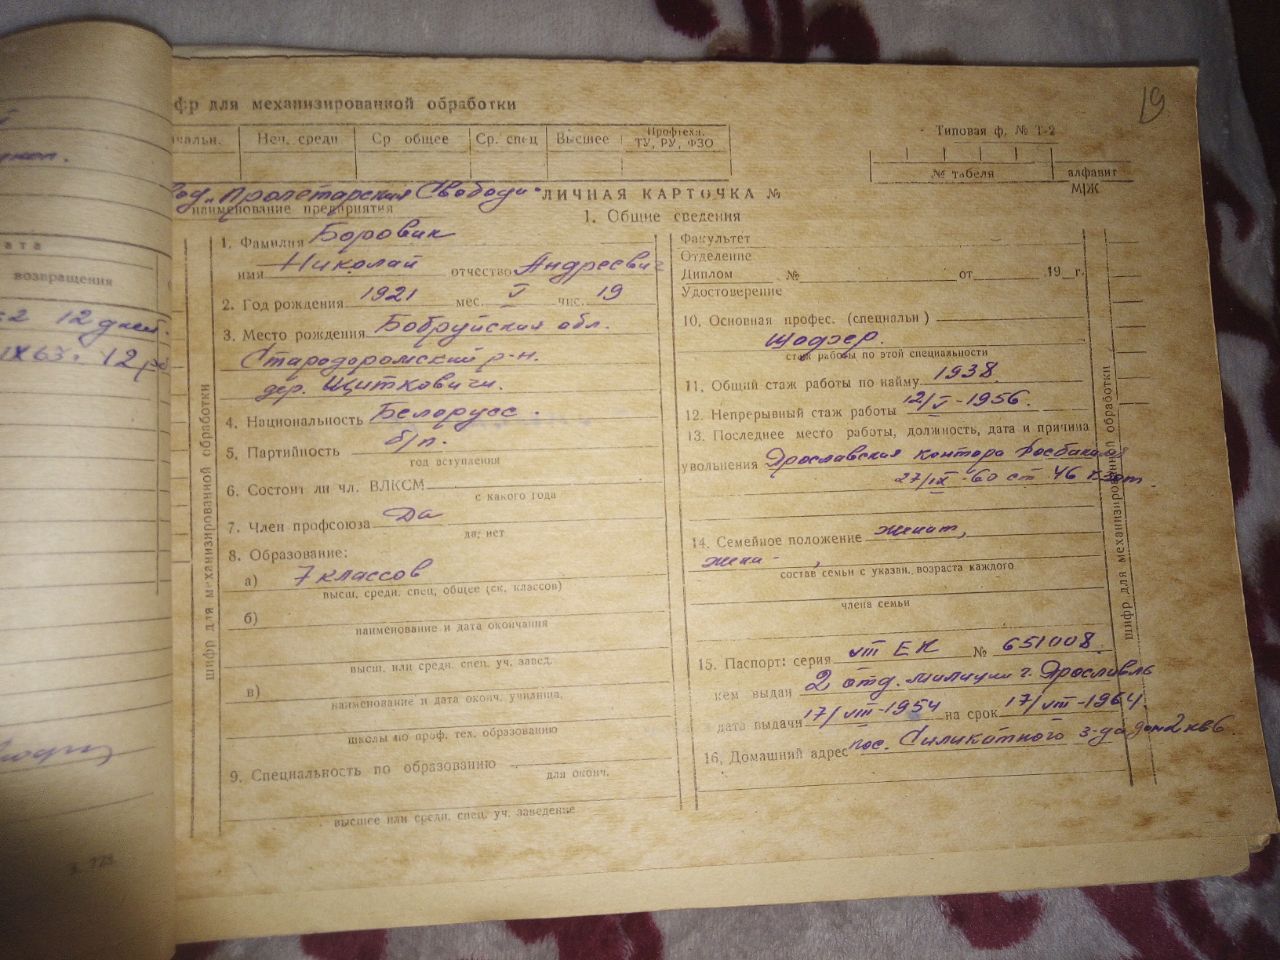 19
фр для механизированной обработки
Типовая ф. № Т-2
чальн. Неч. средн Ср общее Ср. спец Высшее Профтехн. ТУ, РУ, ФЗО
№ табеля алфавит
М/Ж
"Пролетарская Свобода" ЛИЧНАЯ КАРТОЧКА №
наименование предприятия
1. Общие сведения
1. Фамилия Боровик
имя Николай отчество Андреевич
2. Год рождения 1921 мес. V чис. 19
3. Место рождения Бобруйская обл.
Стародоромский р-н.
дер. Щитковичи.
4. Национальность Белорусс.
5. Партийность б/п.
год вступления
6. Состоит ли чл. ВЛКСМ
с какого года
7. Член профсоюза Да
да; нет
8. Образование:
а) 7 классов
высш, средн. спец, общее (ск. классов)
б)
наименование и дата окончания
высш. или средн. спец. уч. завед.
в)
наименование и дата оконч. училища,
школы по проф. тех. образованию
9. Специальность по образованию
для оконч.
высшее или средн. спец. уч. заведение
Факультет
Отделение
Диплом № от 19 г.
Удостоверение
10. Основная профес. (специальн)
Шофер.
стаж работы по этой специальности
11. Общий стаж работы по найму 1938.
12. Непрерывный стаж работы 12/V-1956.
13. Последнее место работы, должность, дата и причина
увольнения Ярославская контора Росбакалея
27/IX-60 ст 46 Кзот.
14. Семейное положение женат,
жена - ,
состав семьи с указан. возраста каждого
члена семьи
15. Паспорт: серия VIII ЕК № 651008.
кем выдан 2 отд. милиции г. Ярославль
дата выдачи 17/VIII-1954 на срок 17/VIII-1964.
16. Домашний адрес пос. Силикатного з-да дом 2 кв 6.
шифр для механизированной обработки
шифр для механизированной обработки
ата
возвращения
12 дней.
IX 63г. 12